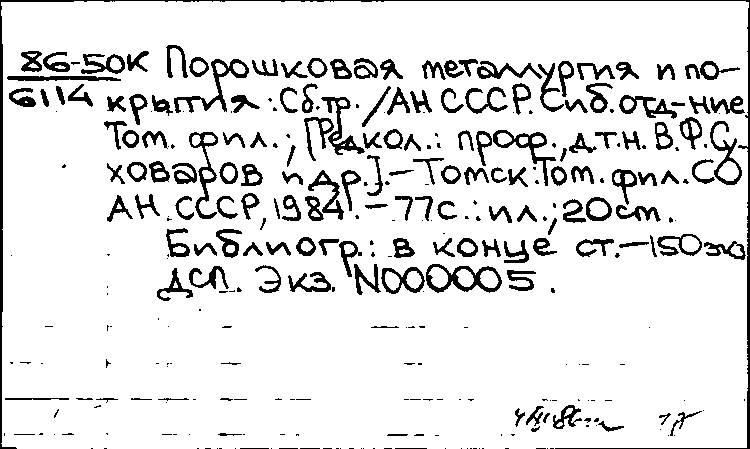 86-50К Порошковая металлургия и по-
6114 крытия: Сб.тр./АН СССР. Сиб.отд-ние.
Том. фил.; [Редкол.: проф., д.т.н. В.Ф.Су-
ховаров и др.].-Томск:Том. фил. СО
АН СССР, 1984.-77с.:ил.;20см.
Библиогр.: в конце ст.-150экз
ДСП. Экз. N000005.